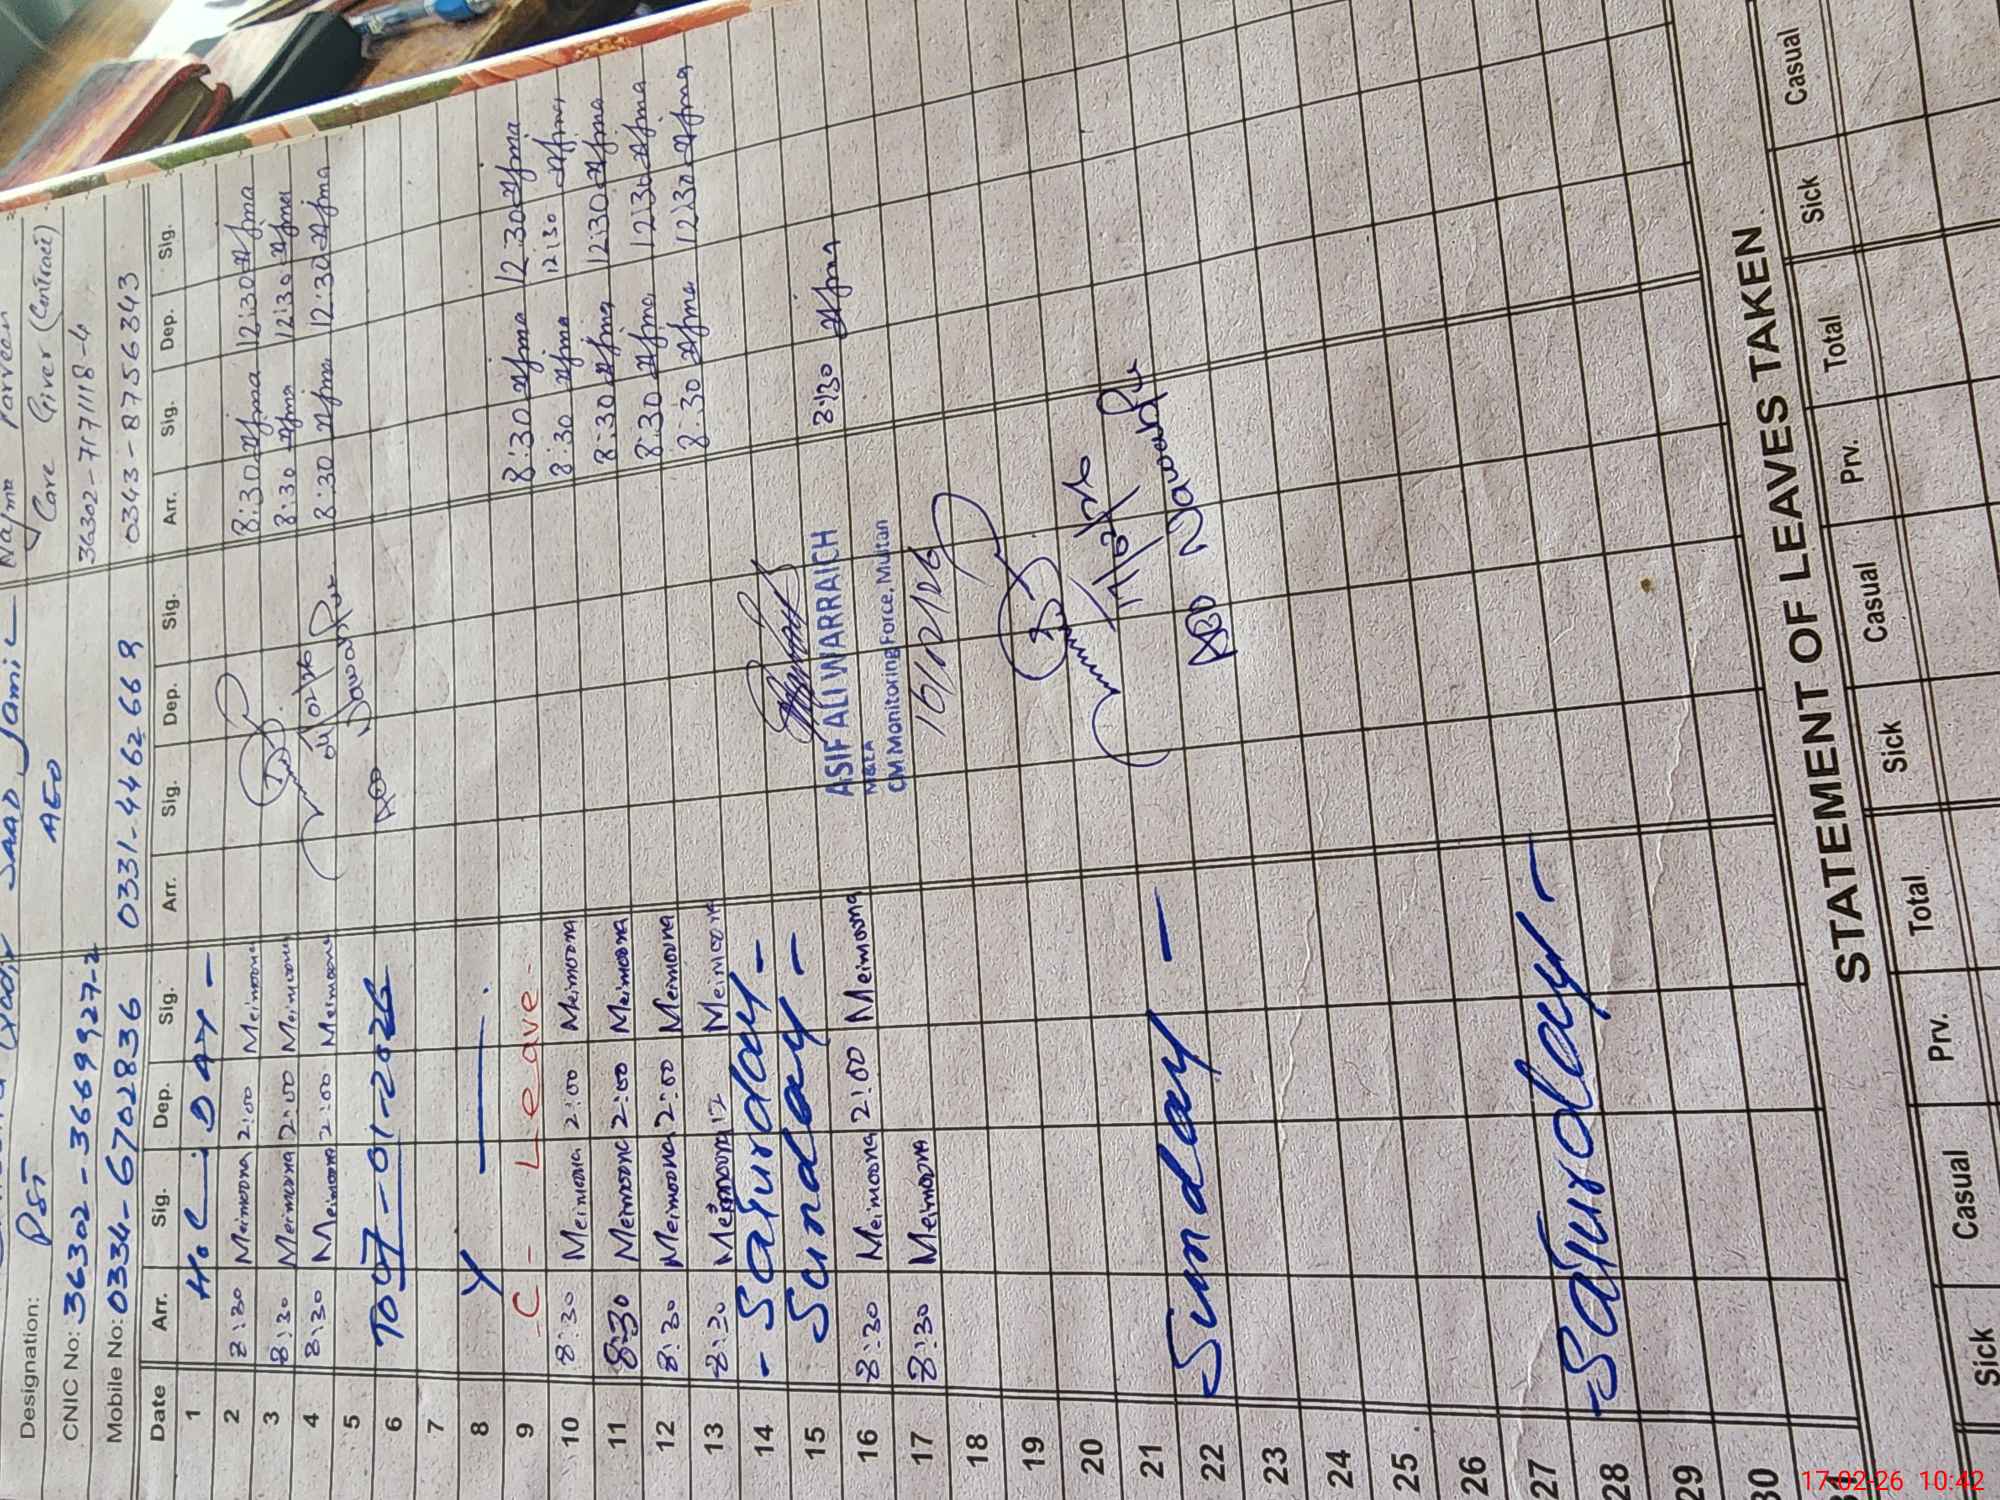 SAAD Jamil Najma Parveen
Designation: PST AEO Care Giver (Contract)
CNIC No: 36302-3669927-2 36302-7171118-4
Mobile No: 0334-6702836 0331-4462669 0343-8756343
Date Arr. Sig. Dep. Sig. Arr. Sig. Dep. Sig. Arr. Sig. Dep. Sig.
1 H.L. DAY -
2 8:30 Meimoona 2:00 Meimoona 8:30 Njma 12:30 Njma
3 8:30 Meimoona 2:00 Meimoona 8:30 Njma 12:30 Njma
4 8:30 Meimoona 2:00 Meimoona 04/02/26 8:30 Njma 12:30 Njma
5
6 To 07-01-2026
7
8
9 - C - Leave - 8:30 Njma 12:30 Njma
10 8:30 Meimoona 2:00 Meimoona 8:30 Njma 12:30 Njma
11 8:30 Meimoona 2:00 Meimoona 8:30 Njma 12:30 Njma
12 8:30 Meimoona 2:00 Meimoona 8:30 Njma 12:30 Njma
13 8:30 Meimoona 12 Meimoona 8:30 Njma 12:30 Njma
14 - Saturday -
15 Sunday -
16 8:30 Meimoona 2:00 Meimoona 8:30 Njma
ASIF ALI WARRAICH
M&EA
CM Monitoring Force, Multan
17 8:30 Meimoona
18
19
20
21 17/02/26
22 - Sunday -
23
24
25
26
27
28 - Saturday -
29
30
STATEMENT OF LEAVES TAKEN
Sick Casual Prv. Total Sick Casual Prv. Total Sick Casual
17-02-26 10:42